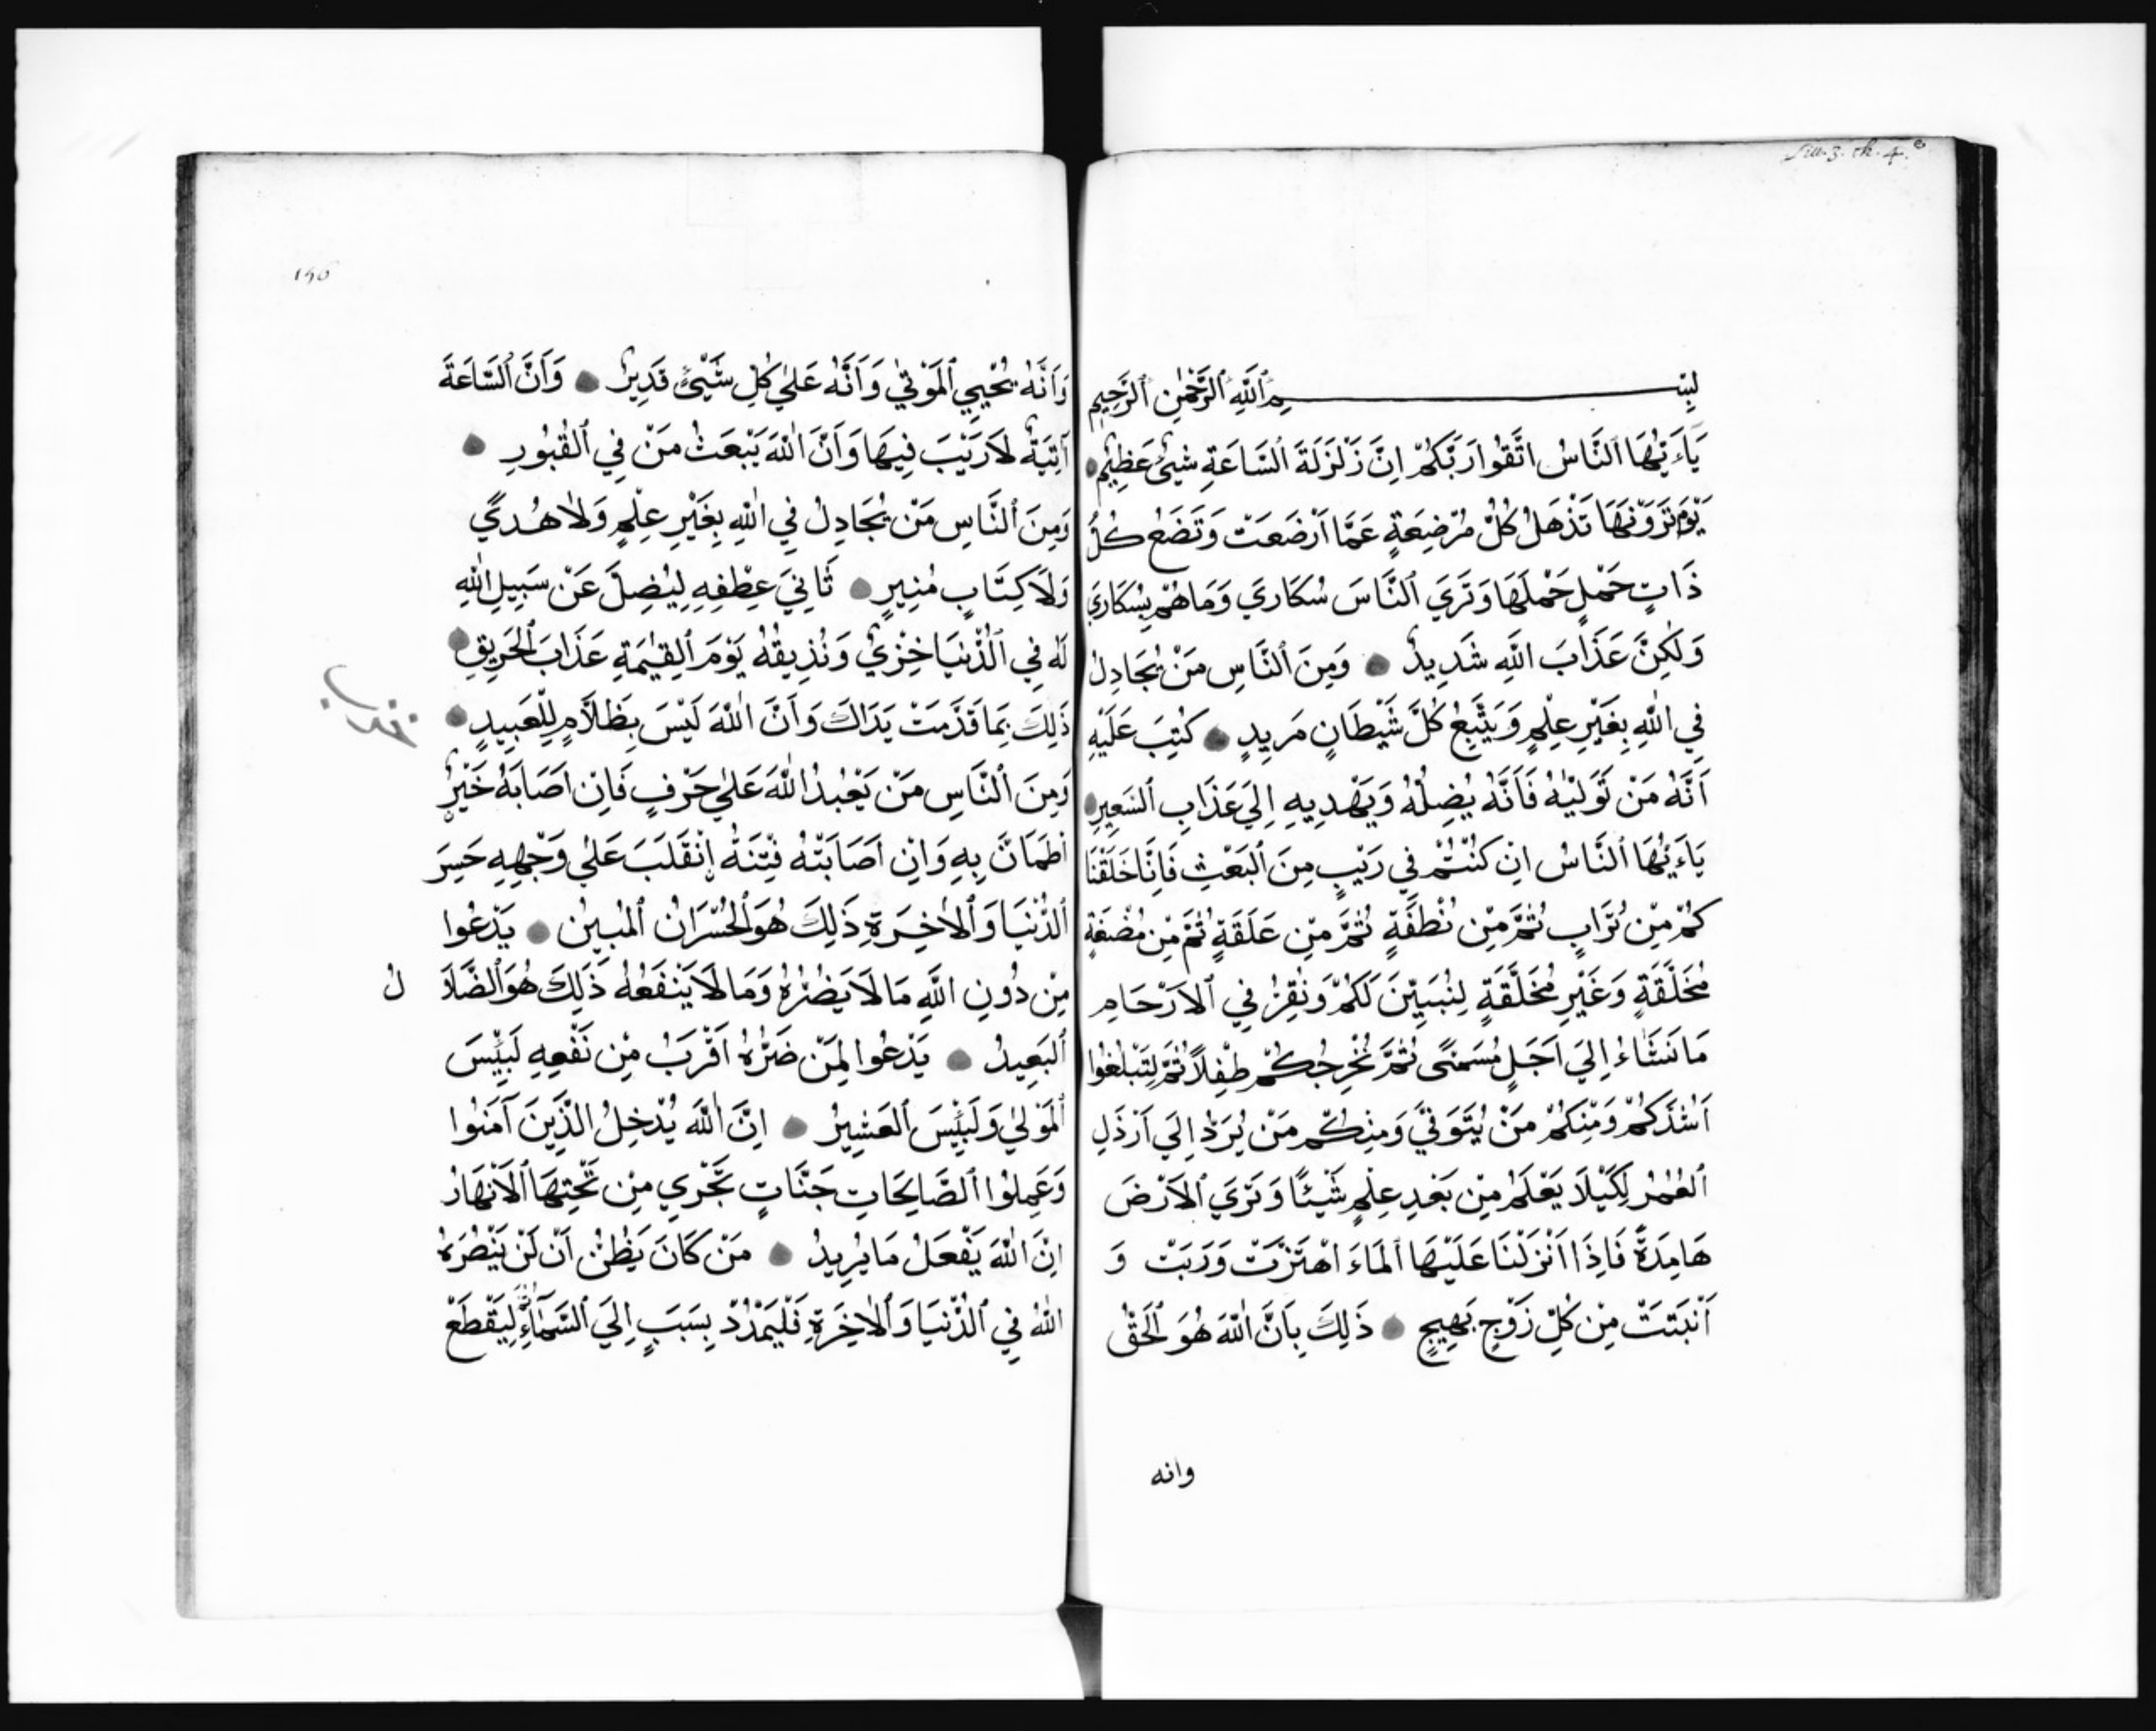 بِسْــــــمِ ٱللَّهِ ٱلرَّحْمٰنِ ٱلرَّحِيمِ
يَاءَيُّهَا ٱلنَّاسُ اتَّقُوا رَبَّكُمْ اِنَّ زَلْزَلَةَ ٱلسَّاعَةِ شَيْءٌ عَظِيمٌ
يَوْمَ تَرَوْنَهَا تَذْهَلُ كُلُّ مُرْضِعَةٍ عَمَّا اَرْضَعَتْ وَتَضَعُ كُلُّ
ذَاتِ حَمْلٍ حَمْلَهَا وَتَرَي ٱلنَّاسَ سُكَارَي وَمَا هُمْ بِسُكَارَي
وَلَكِنَّ عَذَابَ اللَّهِ شَدِيدٌ ● وَمِنَ ٱلنَّاسِ مَنْ يُجَادِلُ
فِي اللّٰهِ بِغَيْرِ عِلْمٍ وَيَتَّبِعُ كُلَّ شَيْطَانٍ مَرِيدٍ ● كُتِبَ عَلَيْهِ
اَنَّهُ مَنْ تَوَلَّيٰهُ فَاَنَّهُ يُضِلُّهُ وَيَهْدِيهِ اِلَيَ عَذَابِ ٱلسَّعِيرِ
يَاءَيُّهَا ٱلنَّاسُ اِنْ كُنْتُمْ فِي رَيْبٍ مِنَ ٱلبَعْثِ فَاِنَّا خَلَقْنَا
كُمْ مِنْ تُرَابٍ ثُمَّ مِنْ نُطْفَةٍ ثُمَّ مِنْ عَلَقَةٍ ثُمَّ مِنْ مُضْغَةٍ
مُخَلَّقَةٍ وَغَيْرِ مُخَلَّقَةٍ لِنُبَيِّنَ لَكُمْ وَنُقِرُّ فِي ٱلاَرْحَامِ
مَا نَشَاءُ اِلَيَ اَجَلٍ مُسَمًّى ثُمَّ نُخْرِجُكُمْ طِفْلاً ثُمَّ لِتَبْلُغُوا
اَشُدَّكُمْ وَمِنْكُمْ مَنْ يُتَوَفَّيَ وَمِنْكُمْ مَنْ يُرَدُّ اِلَيَ اَرْذَلِ
ٱلعُمُرِ لِكَيْلاَ يَعْلَمَ مِنْ بَعْدِ عِلْمٍ شَيْئًا وَتَرَيَ ٱلاَرْضَ
هَامِدَةً فَاِذَا اَنْزَلْنَا عَلَيْهَا ٱلمَاءَ اهْتَزَّتْ وَرَبَتْ وَ
اَنْبَتَتْ مِنْ كُلِّ زَوْجٍ بَهِيجٍ ● ذَلِكَ بِاَنَّ اللّٰهَ هُوَ ٱلحَقُّ
وانه
156
وَاَنَّهُ يُحْيِي ٱلمَوْتَيٰ وَاَنَّهُ عَلَيٰ كُلِّ شَيْئٍ قَدِيرٌ ● وَاَنَّ ٱلسَّاعَةَ
آتِيَةٌ لاَ رَيْبَ فِيهَا وَاَنَّ اللّٰهَ يَبْعَثُ مَنْ فِي ٱلقُبُورِ ●
وَمِنَ ٱلنَّاسِ مَنْ يُجَادِلُ فِي اللّٰهِ بِغَيْرِ عِلْمٍ وَلاَ هُدًي
وَلاَ كِتَابٍ مُنِيرٍ ● ثَانِيَ عِطْفِهِ لِيُضِلَّ عَنْ سَبِيلِ اللّٰهِ
لَهُ فِي ٱلدُّنْيَا خِزْيٌ وَنُذِيقُهُ يَوْمَ ٱلقِيٰمَةِ عَذَابَ ٱلحَرِيقِ ●
ذَلِكَ بِمَا قَدَّمَتْ يَدَاكَ وَاَنَّ اللّٰهَ لَيْسَ بِظَلاَّمٍ لِلْعَبِيدِ ●
وَمِنَ ٱلنَّاسِ مَنْ يَعْبُدُ اللّٰهَ عَلَيٰ حَرْفٍ فَاِنْ اَصَابَهُ خَيْرٌ
اطْمَاَنَّ بِهِ وَاِنْ اَصَابَتْهُ فِتْنَةٌ اِنْقَلَبَ عَلَيٰ وَجْهِهِ خَسِرَ
ٱلدُّنْيَا وَٱلاٰخِرَةِ ذَلِكَ هُوَ ٱلخُسْرَانُ ٱلمُبِينُ ● يَدْعُوا
مِنْ دُونِ اللَّهِ مَا لاَ يَضُرُّهُ وَمَا لاَ يَنْفَعُهُ ذَلِكَ هُوَ ٱلضَّلاَ لُ
ٱلبَعِيدُ ● يَدْعُوا لَمَنْ ضَرُّهُ اَقْرَبُ مِنْ نَفْعِهِ لَبِئْسَ
ٱلمَوْلَيٰ وَلَبِئْسَ ٱلعَشِيرُ ● اِنَّ اللّٰهَ يُدْخِلُ الَّذِينَ آمَنُوا
وَعَمِلُوا ٱلصَّالِحَاتِ جَنَّاتٍ تَجْرِي مِنْ تَحْتِهَا ٱلاَنْهَارُ
اِنَّ اللّٰهَ يَفْعَلُ مَا يُرِيدُ ● مَنْ كَانَ يَظُنُّ اَنْ لَنْ يَنْصُرَهُ
اللّٰهُ فِي ٱلدُّنْيَا وَٱلاٰخِرَةِ فَلْيَمْدُدْ بِسَبَبٍ اِلَيَ ٱلسَّمَاءِ ثُمَّ لِيَقْطَعْ